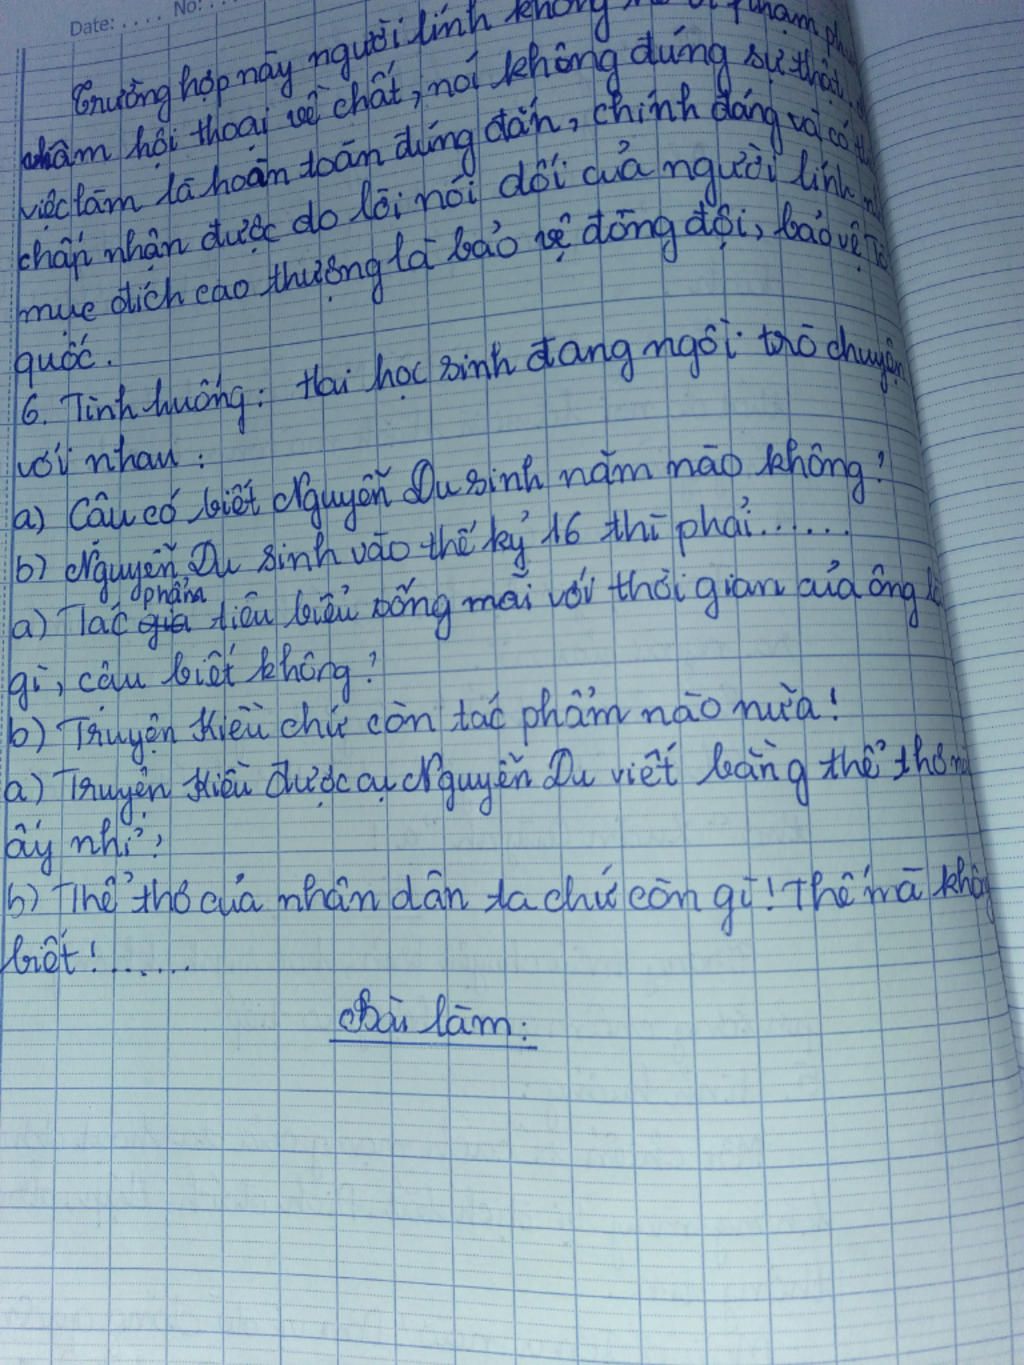 Date: .... No: ...
Trường hợp này người lính không phạm
châm hội thoại về chất, nói không đúng sự thật
việc làm là hoàn toàn đúng đắn, chính đáng và có
chấp nhận được do lời nói dối của người lính
mục đích cao thượng là bảo vệ đồng đội, bảo vệ Tổ
quốc.
6. Tình huống: Hai học sinh đang ngồi trò chuyện
với nhau:
a) Cậu có biết Nguyễn Du sinh năm nào không?
b) Nguyễn Du sinh vào thế kỷ 16 thì phải......
phẩm
a) Tác giả tiêu biểu sống mãi với thời gian của ông là
gì, cậu biết không?
b) Truyện Kiều chứ còn tác phẩm nào nữa!
a) Truyện Kiều được cụ Nguyễn Du viết bằng thể thơ
ấy nhỉ?
b) Thể thơ của nhân dân ta chứ còn gì! Thế mà không
biết!......
Bài làm: